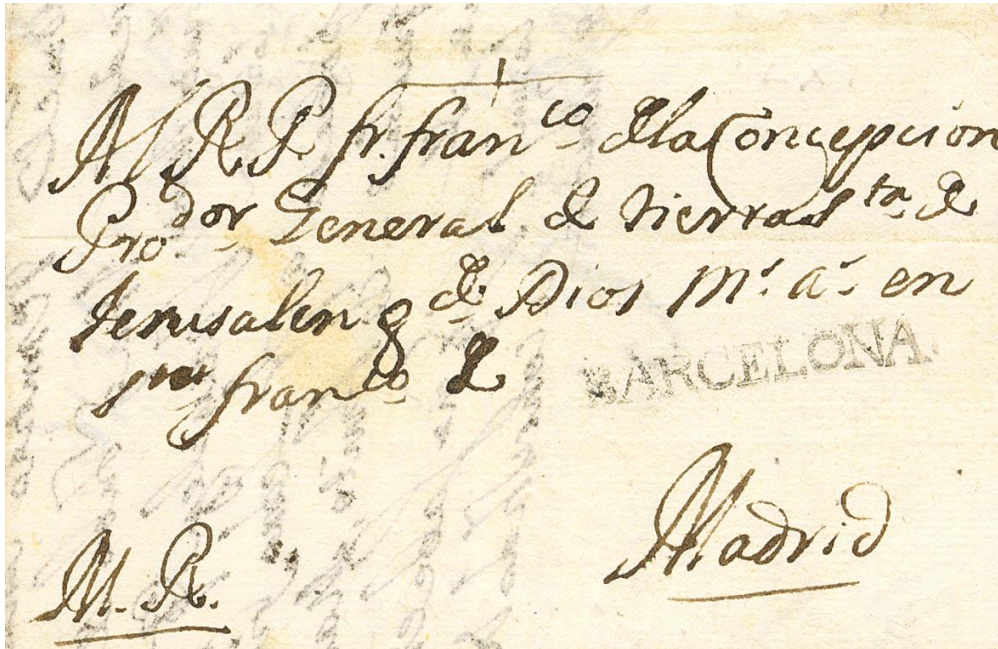 Al R P fr. fran^co de la Concepcion
Pro^dor General de tierra s^ta de
Jerusalen q^e g^de Dios m^s a^s en
s^n fran^co de
BARCELONA
Madrid
M. R.